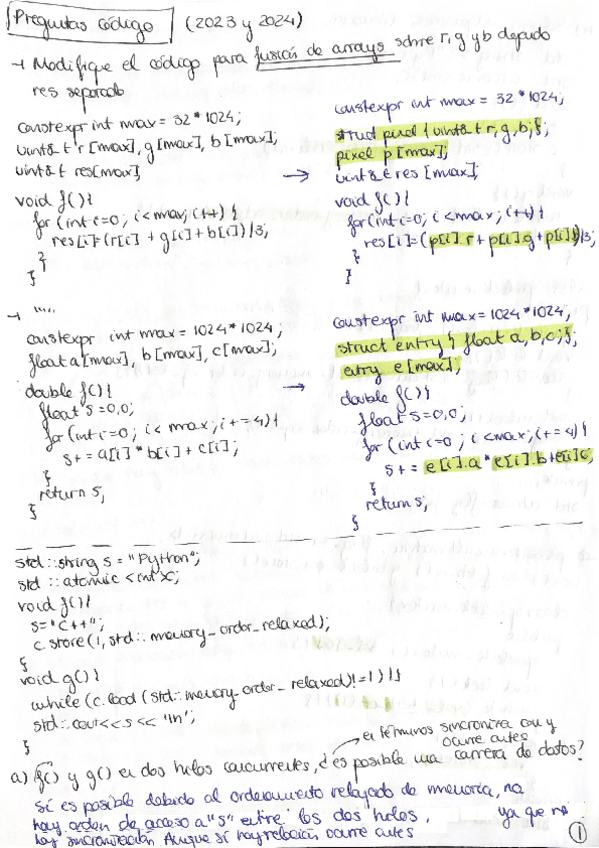 Preguntas código (2023 y 2024)
→ Modifique el código para fusión de arrays sobre r, g y b dejando
res separado
constexpr int max = 32 * 1024;
uint8_t r[max], g[max], b[max];
uint8_t res[max];
void f(){
for (int i=0; i<max; i++) {
res[i]=(r[i] + g[i]+b[i])/3;
}
}
→
constexpr int max = 32 * 1024;
struct pixel { uint8_t r, g, b; };
pixel p[max];
uint8_t res[max];
void f(){
for(int i=0; i<max; i++) {
res[i]=(p[i].r+p[i].g+p[i].b)/3;
}
}
→ ""..
constexpr int max = 1024*1024;
float a[max], b[max], c[max];
double f(){
float s=0,0;
for (int i=0; i<max; i+=4){
s+= a[i]*b[i]+c[i];
}
return s;
}
→
constexpr int max = 1024*1024;
struct entry { float a, b, c; };
entry e[max];
double f(){
float s=0,0;
for (int i=0; i<max; i+=4){
s+= e[i].a * e[i].b+e[i].c;
}
return s;
}
std::string s = "Python";
std::atomic<int>c;
void f(){
s="C++";
c.store(1, std::memory_order_relaxed);
}
void g(){
while (c.load (std::memory_order_relaxed)!=1) {}
std::cout<<s << '\n';
}
en términos sincroniza con y
ocurre antes
a) f() y g() en dos hilos concurrentes, ¿es posible una carrera de datos?
Sí es posible debido al ordenamiento relajado de memoria, no
hay orden de acceso a "s" entre los dos hilos, ya que no
hay sincronización Aunque sí hay relación ocurre antes
1